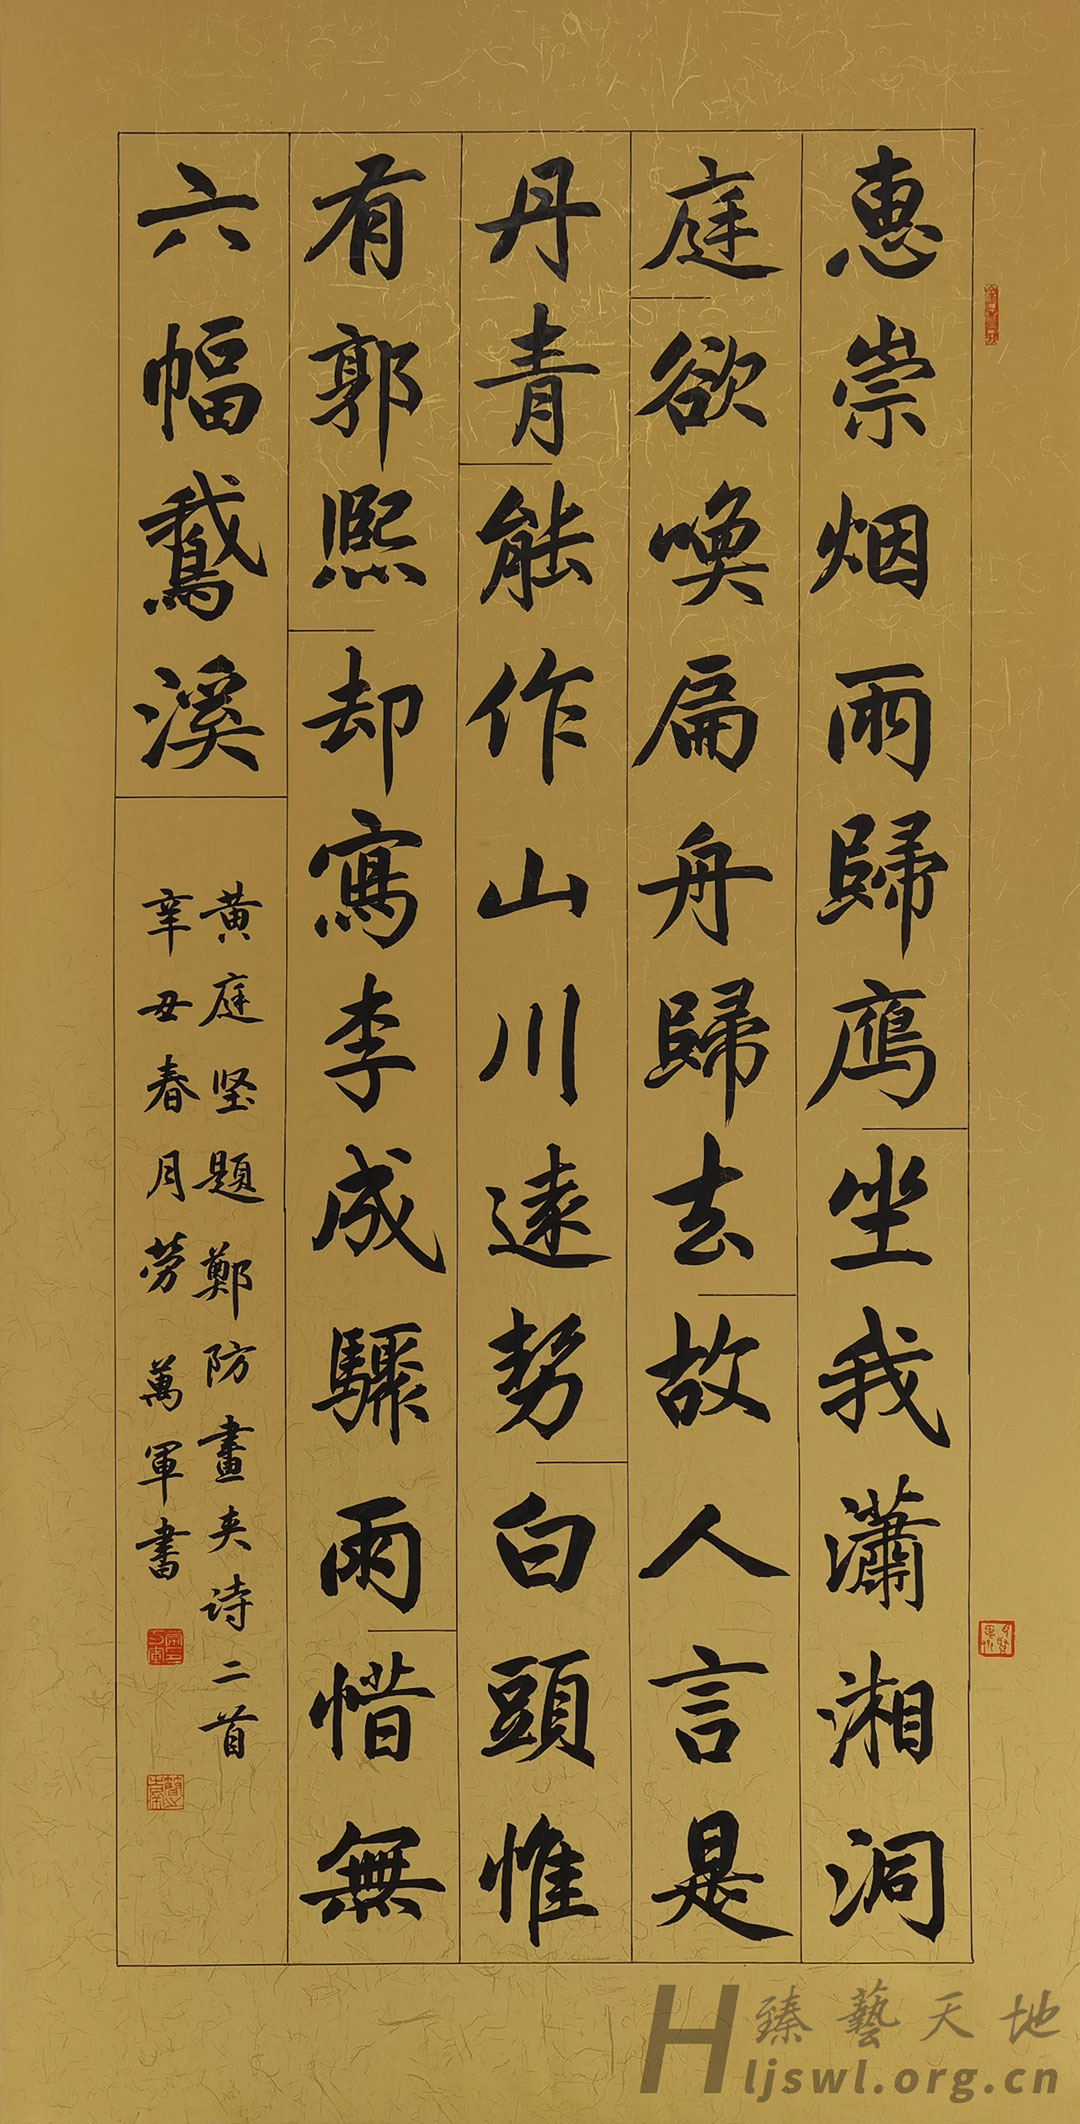 惠崇烟雨歸鴈坐我瀟湘洞
庭欲喚扁舟歸去故人言是
丹青能作山川遠勢白頭惟
有郭熙却寫李成驟雨惜無
六幅鵞溪
黄庭坚題鄭防畫夹诗二首
辛丑春月劳萬軍書
臻藝天地
Hljswl.org.cn